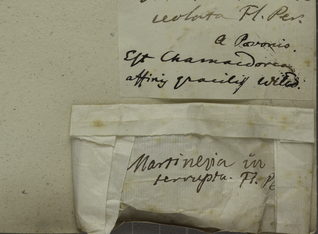 Fl. Per.
a Pavonis.
Est Chamaedorea
affinis gracilis Willd.
Martinezia in
terrupta. Fl. P